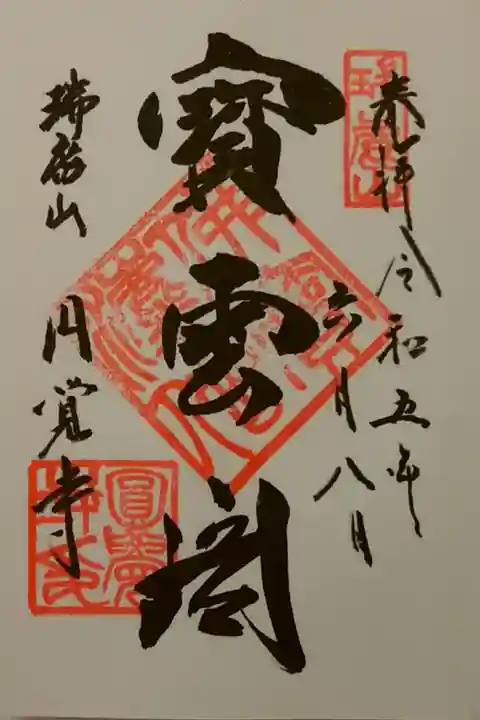 奉拝 令和五年
六月八日
寶雲閣
瑞鹿山 円覚寺
瑞鹿山
圓覺